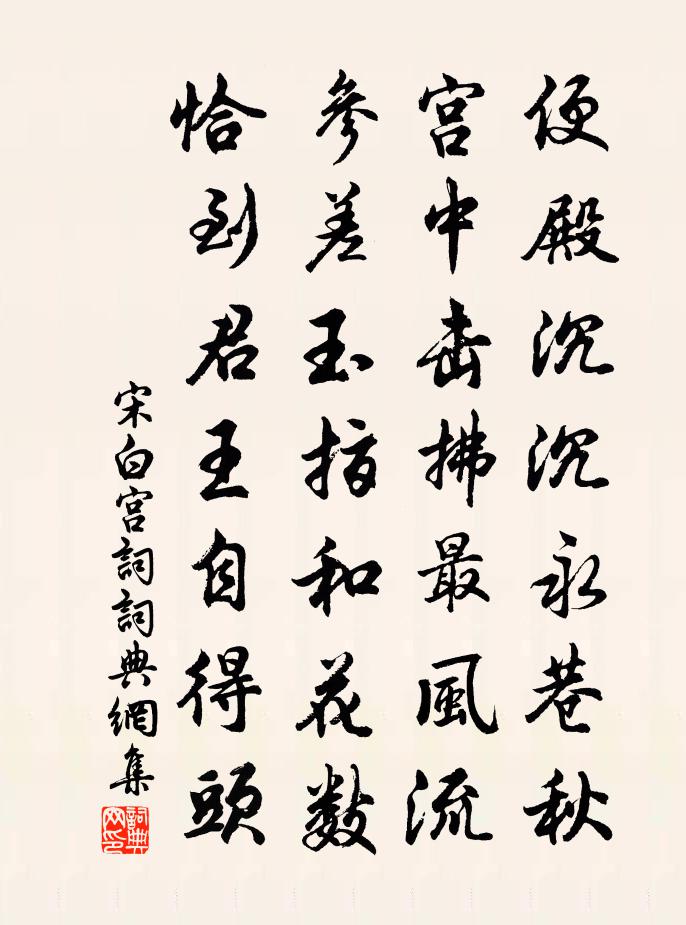 便殿沉沉永巷秋
宫中击拂最風流
參差玉指和花数
恰到君王自得頭
宋白宫詞詞典網集
詞典网印